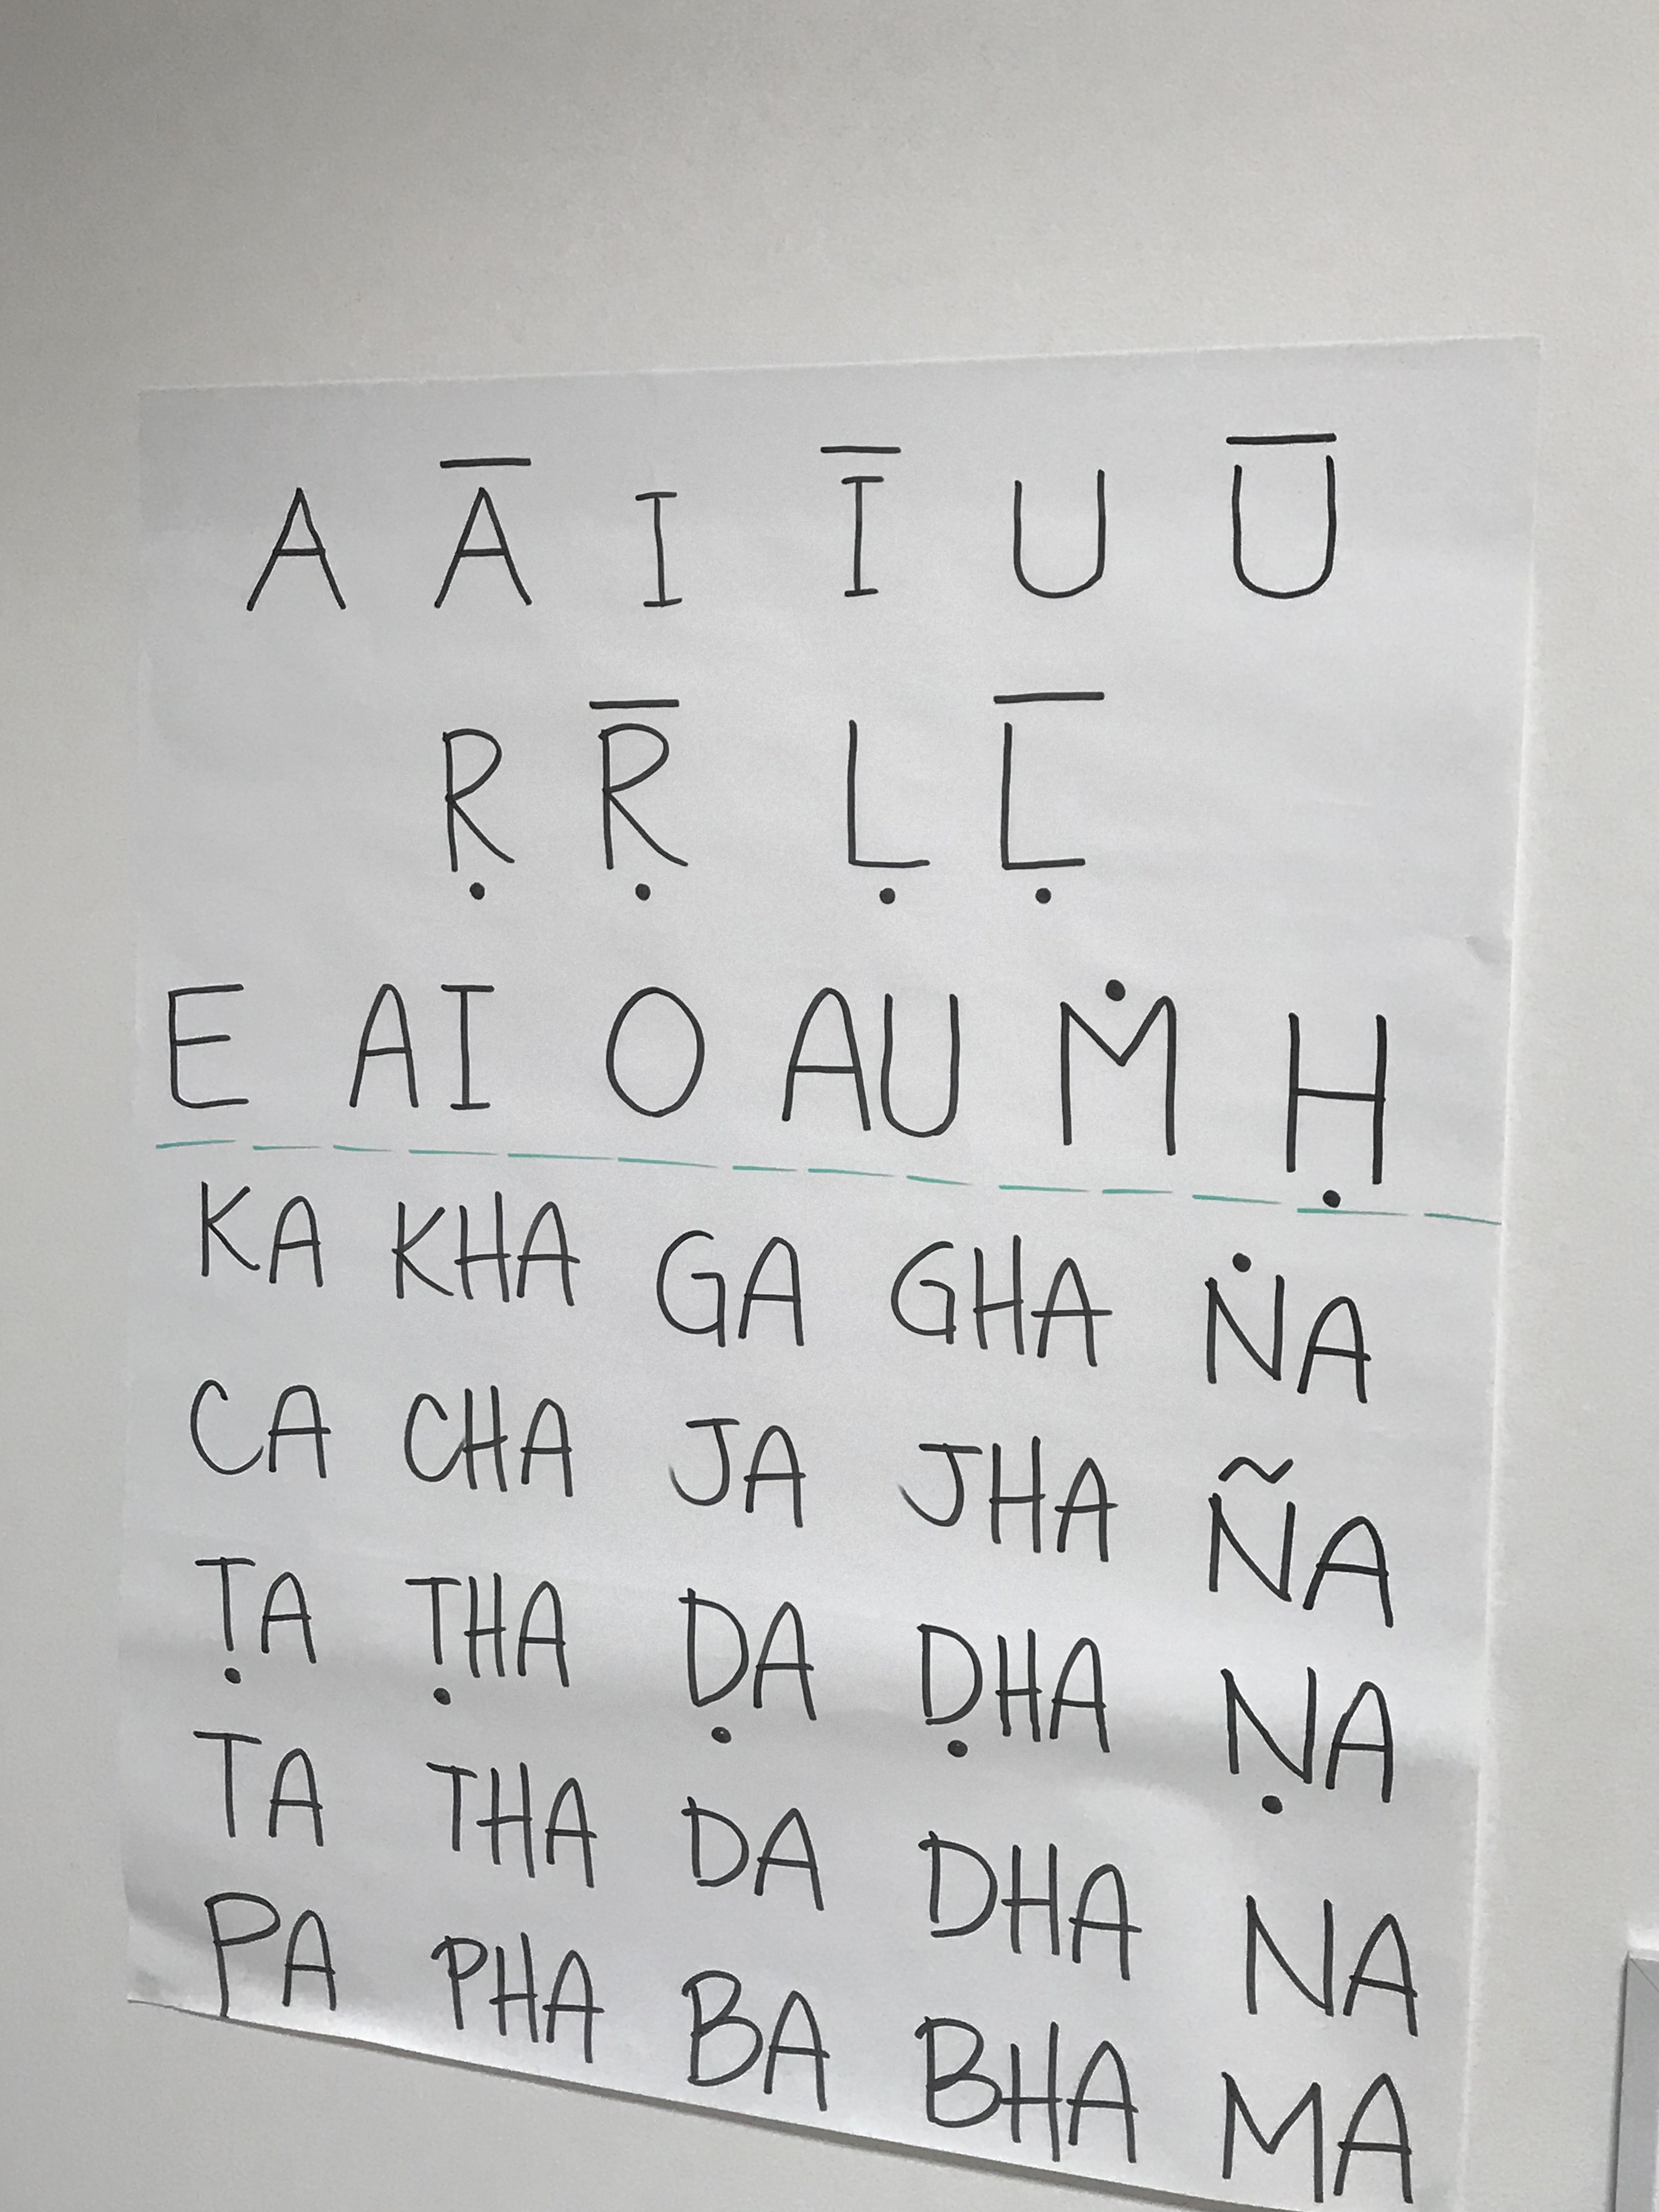 A Ā I Ī U Ū
Ṛ Ṝ Ḷ Ḹ
E AI O AU Ṁ Ḥ
KA KHA GA GHA ṄA
CA CHA JA JHA ÑA
ṬA ṬHA ḌA ḌHA ṆA
TA THA DA DHA NA
PA PHA BA BHA MA